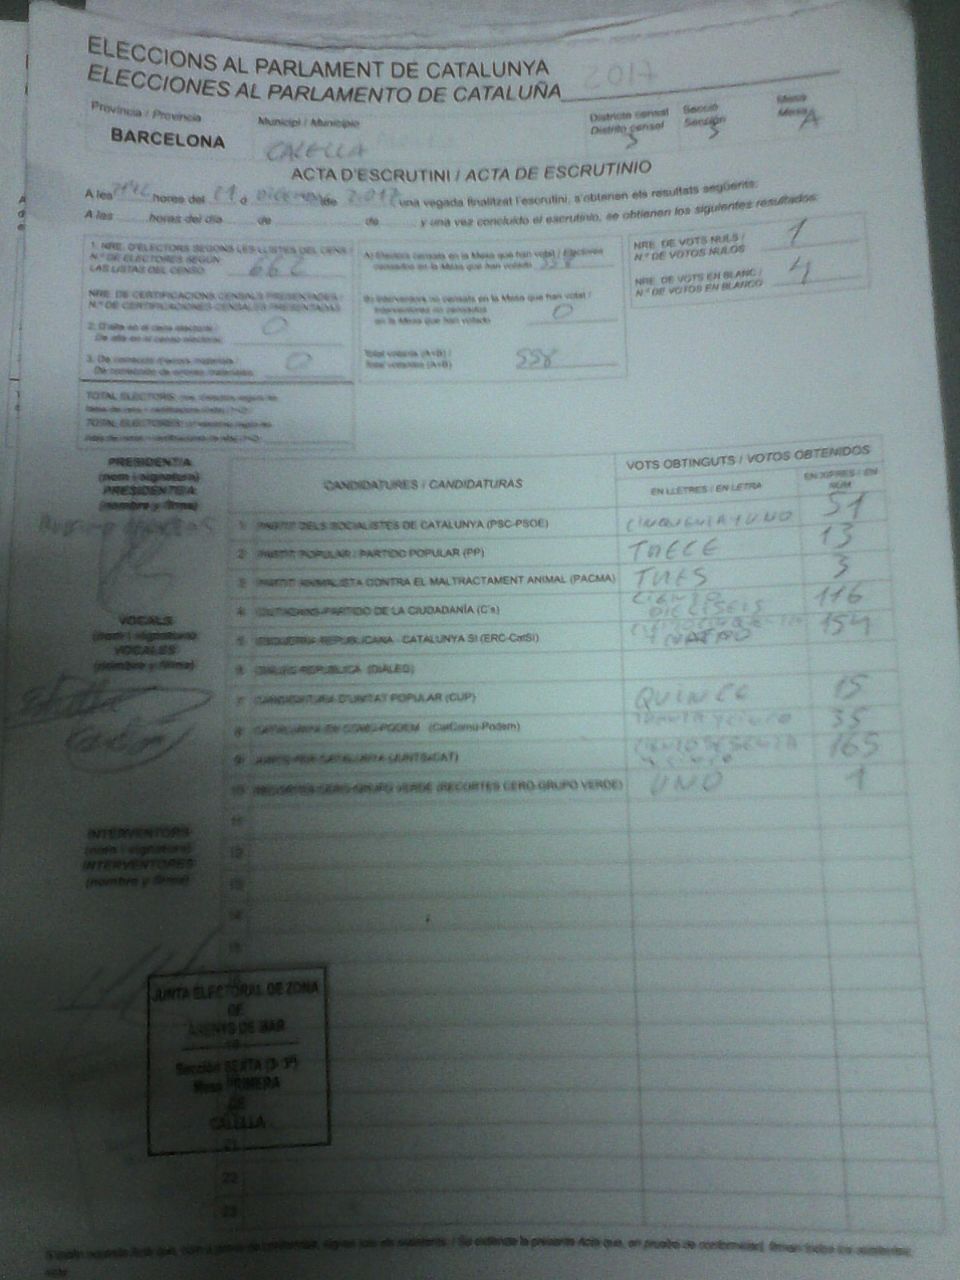 ELECCIONS AL PARLAMENT DE CATALUNYA
ELECCIONES AL PARLAMENTO DE CATALUÑA 2017
Província / Provincia
BARCELONA
Municipi / Municipio
CALELLA
Districte censal
Distrito censal
3
Secció
Sección
3
Mesa
Mesa A
ACTA D'ESCRUTINI / ACTA DE ESCRUTINIO
A les hores del 21 d de 2.017 una vegada finalitzat l'escrutini, s'obtenen els resultats següents:
A las horas del día de de y una vez concluido el escrutinio, se obtienen los siguientes resultados:
1. NRE. D'ELECTORS SEGONS LES LLISTES DEL CENS /
N.º DE ELECTORES SEGÚN
LAS LISTAS DEL CENSO 662
NRE. DE CERTIFICACIONS CENSALS PRESENTADES /
N.º DE CERTIFICACIONES CENSALES PRESENTADAS
2. D'alta en el cens electoral /
De alta en el censo electoral 0
3. De correcció d'errors materials /
De corrección de errores materiales 0
A) Electors censats en la Mesa que han votat / Electores
censados en la Mesa que han votado 558
B) Interventors no censats en la Mesa que han votat /
Interventores no censados
en la Mesa que han votado 0
Total votants (A+B) /
Total votantes (A+B) 558
NRE. DE VOTS NULS /
N.º DE VOTOS NULOS 1
NRE. DE VOTS EN BLANC /
N.º DE VOTOS EN BLANCO 4
TOTAL ELECTORS:
TOTAL ELECTORES:
PRESIDENTIA
(nom i signatura)
PRESIDENTE/A
(nombre y firma)
VOCALS
(nom i signatura)
VOCALES
(nombre y firma)
INTERVENTORS
(nom i signatura)
INTERVENTORES
(nombre y firma)
CANDIDATURES / CANDIDATURAS
VOTS OBTINGUTS / VOTOS OBTENIDOS
EN LLETRES / EN LETRA
EN XIFRES / EN NÚM
1 PARTIT DELS SOCIALISTES DE CATALUNYA (PSC-PSOE) CINQUENTA Y UNO 51
2 PARTIT POPULAR / PARTIDO POPULAR (PP) TRECE 13
3 PARTIT ANIMALISTA CONTRA EL MALTRACTAMENT ANIMAL (PACMA) TRES 3
4 CIUTADANS-PARTIDO DE LA CIUDADANÍA (C's) CIENTO DIECISEIS 116
5 ESQUERRA REPUBLICANA - CATALUNYA SÍ (ERC-CatSí) 154
6 DIÀLEG REPUBLICÀ (DIÀLEG)
7 CANDIDATURA D'UNITAT POPULAR (CUP) QUINCE 15
8 CATALUNYA EN COMÚ-PODEM (CatComú-Podem) TRENTA Y CINCO 35
9 JUNTS PER CATALUNYA (JUNTSxCAT) CIENTO SESENTA Y CINCO 165
10 RECORTES CERO-GRUPO VERDE (RECORTES CERO-GRUPO VERDE) UNO 1
11
12
13
14
15
JUNTA ELECTORAL DE ZONA
DE
ARENYS DE MAR
Sección SEXTA (3-3ª)
Mesa PRIMERA
DE
CALELLA
21
22
23